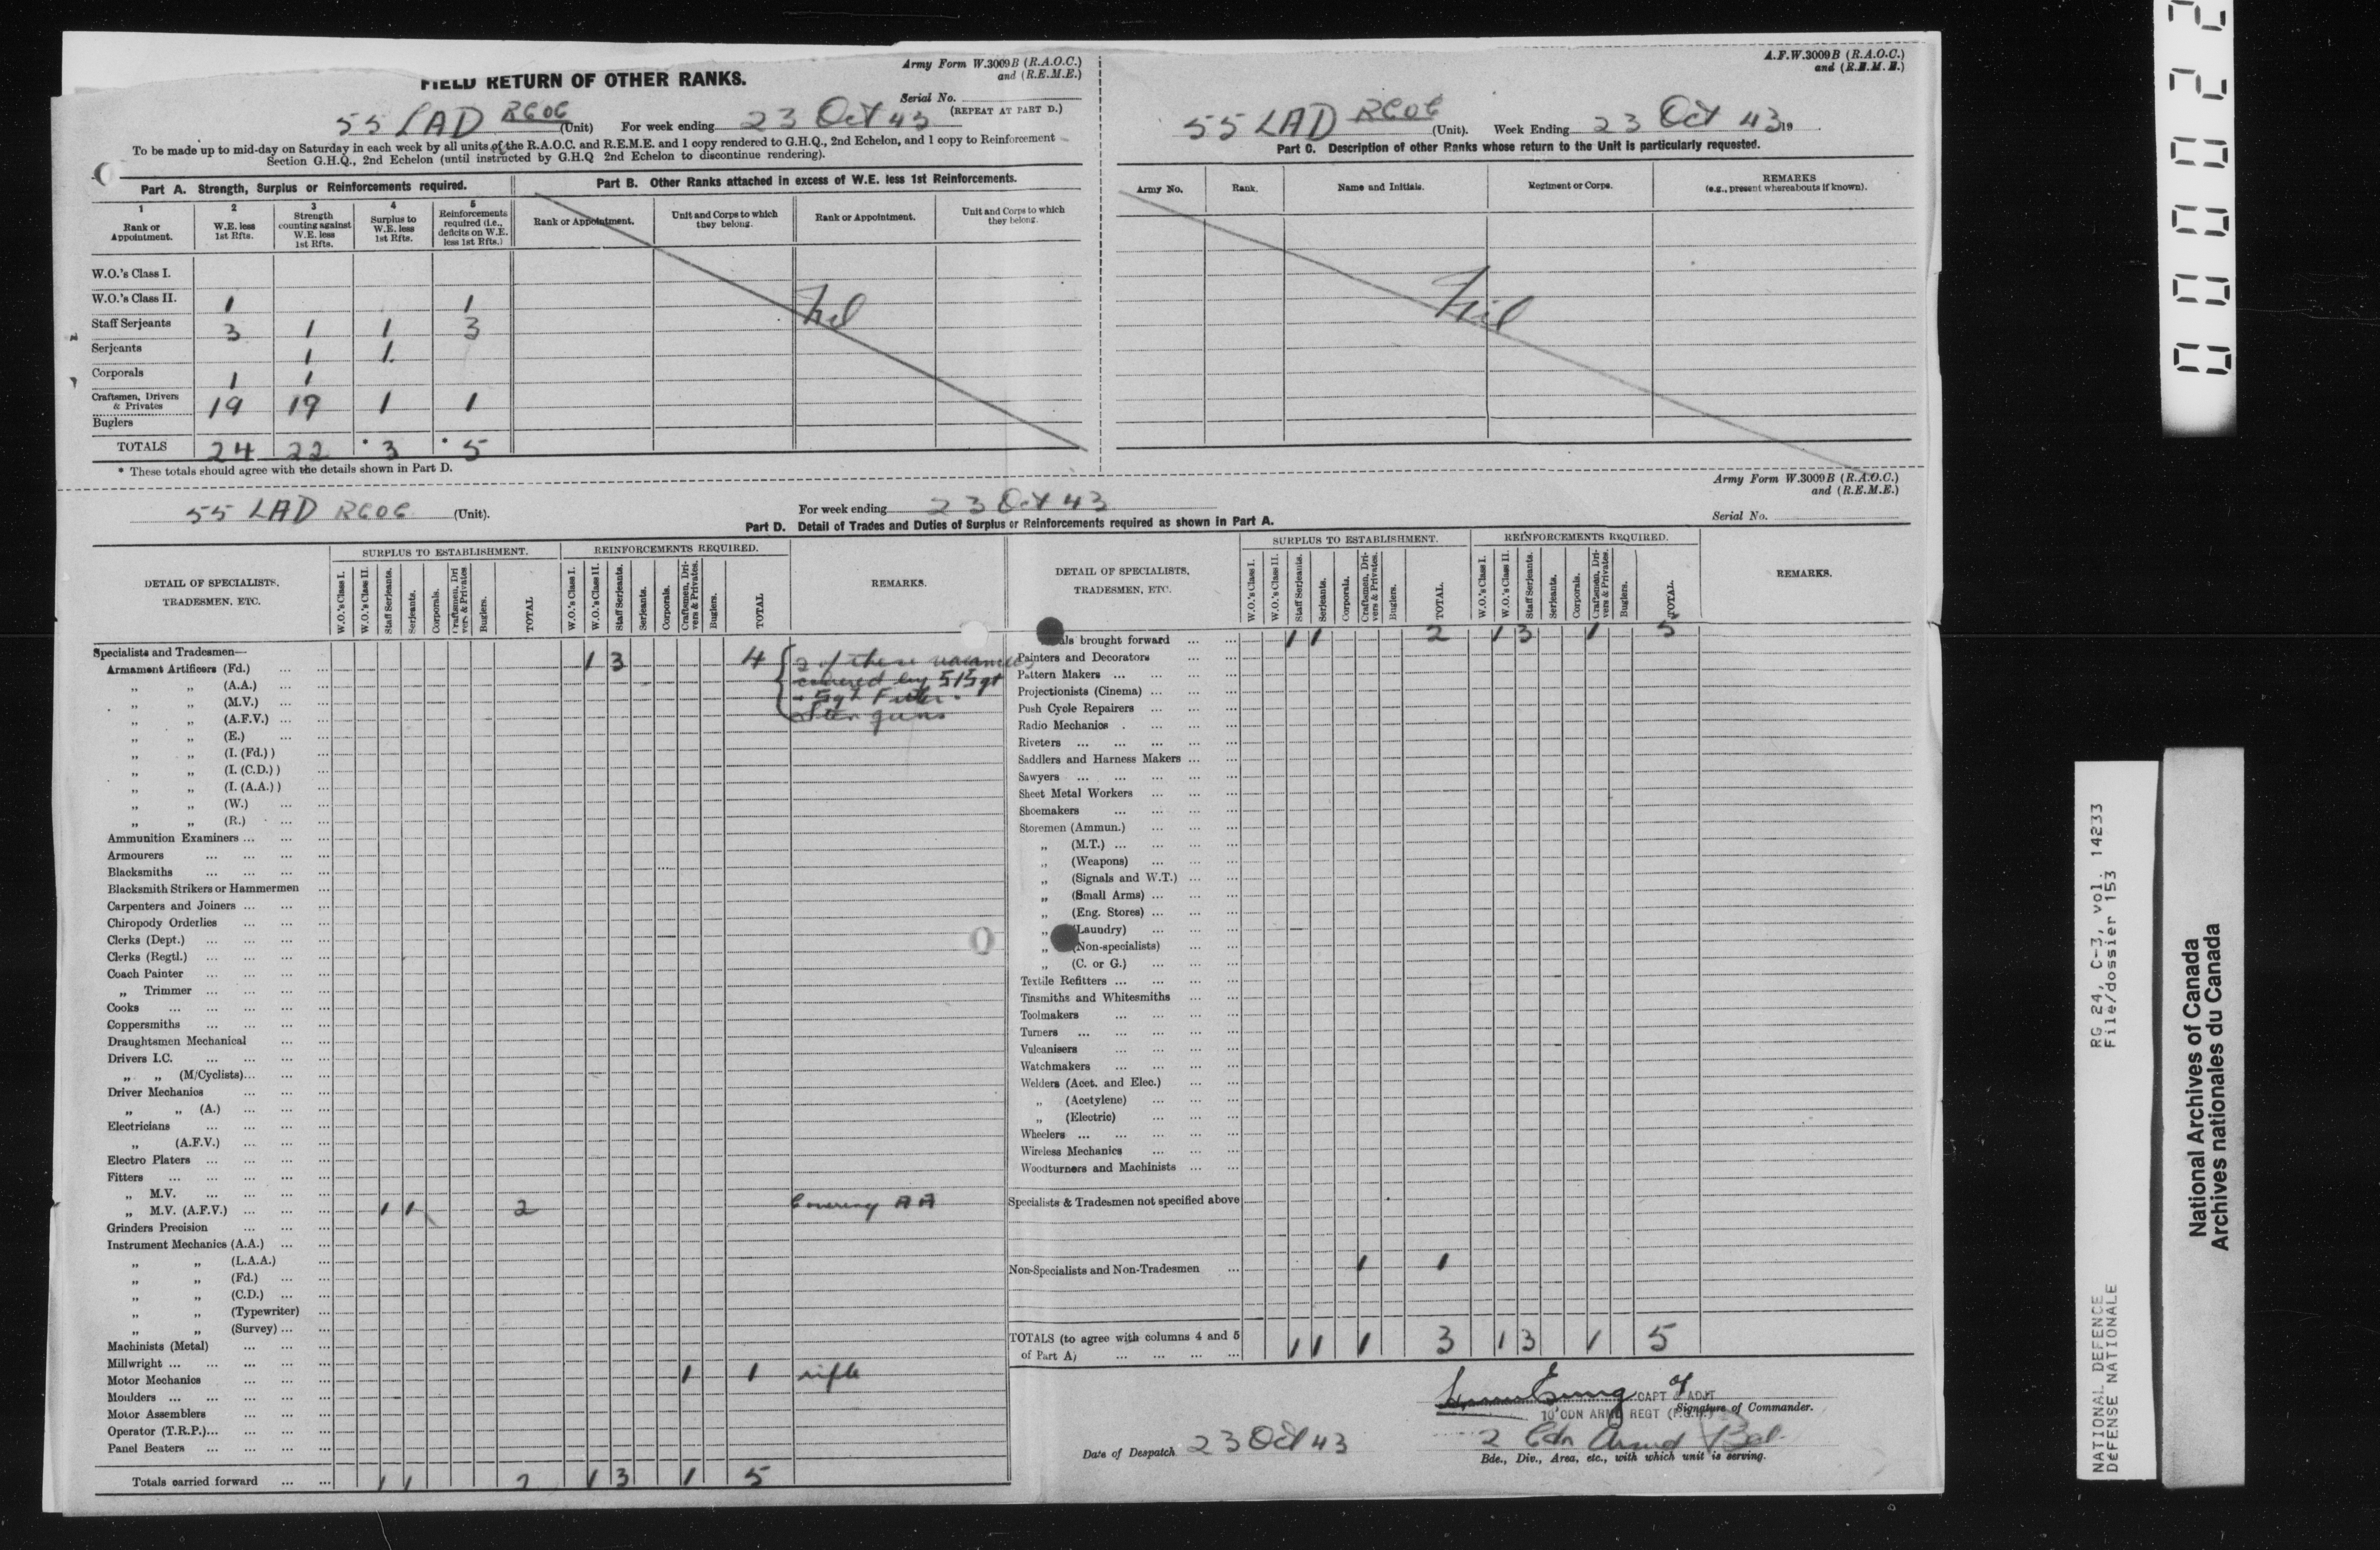 FIELD RETURN OF OTHER RANKS.
Army Form W.3009B (R.A.O.C.)
and (R.E.M.E.)
Serial No.
(REPEAT AT PART D.)
55 LAD RCOC (Unit) For week ending 23 Oct 43
To be made up to mid-day on Saturday in each week by all units of the R.A.O.C. and R.E.M.E. and 1 copy rendered to G.H.Q., 2nd Echelon, and 1 copy to Reinforcement
Section G.H.Q., 2nd Echelon (until instructed by G.H.Q 2nd Echelon to discontinue rendering).
Part A. Strength, Surplus or Reinforcements required.
1 Rank or Appointment.
2 W.E. less 1st Rfts.
3 Strength counting against W.E. less 1st Rfts.
4 Surplus to W.E. less 1st Rfts.
5 Reinforcements required (i.e., deficits on W.E. less 1st Rfts.)
W.O.'s Class I.
W.O.'s Class II. 1 1
Staff Serjeants 3 1 1 3
Serjeants 1 1
Corporals 1 1
Craftsmen, Drivers & Privates 19 19 1 1
Buglers
TOTALS 24 22 * 3 * 5
* These totals should agree with the details shown in Part D.
Part B. Other Ranks attached in excess of W.E. less 1st Reinforcements.
Rank or Appointment. Unit and Corps to which they belong. Rank or Appointment. Unit and Corps to which they belong.
Nil
A.F.W.3009B (R.A.O.C.)
and (R.E.M.E.)
55 LAD RCOC (Unit). Week Ending 23 Oct 43 19
Part C. Description of other Ranks whose return to the Unit is particularly requested.
Army No. Rank. Name and Initials. Regiment or Corps. REMARKS (e.g., present whereabouts if known).
Nil
Army Form W.3009B (R.A.O.C.)
and (R.E.M.E.)
Serial No.
55 LAD RCOC (Unit). For week ending 23 Oct 43
Part D. Detail of Trades and Duties of Surplus or Reinforcements required as shown in Part A.
DETAIL OF SPECIALISTS, TRADESMEN, ETC.
SURPLUS TO ESTABLISHMENT.
W.O.'s Class I. W.O.'s Class II. Staff Serjeants. Serjeants. Corporals. Craftsmen, Drivers & Privates Buglers. TOTAL
REINFORCEMENTS REQUIRED.
W.O.'s Class I. W.O.'s Class II. Staff Serjeants. Serjeants. Corporals. Craftsmen, Drivers & Privates. Buglers. TOTAL
REMARKS.
Specialists and Tradesmen—
Armament Artificers (Fd.) ... ... 1 3 4 2 of these vacancies
„ „ (A.A.) ... ... covered by S/Sgt
„ „ (M.V.) ... ... + Sgt Fitter.
„ „ (A.F.V.) ... ... Sten guns
„ „ (E.) ... ...
„ „ (I. (Fd.) ) ...
„ „ (I. (C.D.) ) ...
„ „ (I. (A.A.) ) ...
„ „ (W.) ... ...
„ „ (R.) ... ...
Ammunition Examiners ... ... ...
Armourers ... ... ... ...
Blacksmiths ... ... ... ...
Blacksmith Strikers or Hammermen ...
Carpenters and Joiners ... ... ...
Chiropody Orderlies ... ... ...
Clerks (Dept.) ... ... ... ...
Clerks (Regtl.) ... ... ... ...
Coach Painter ... ... ...
„ Trimmer ... ... ... ...
Cooks ... ... ... ... ...
Coppersmiths ... ... ... ...
Draughtsmen Mechanical ... ...
Drivers I.C. ... ... ... ...
„ „ (M/Cyclists)... ... ...
Driver Mechanics ... ... ...
„ „ (A.) ... ... ...
Electricians ... ... ... ...
„ (A.F.V.) ... ... ...
Electro Platers ... ... ... ...
Fitters ... ... ... ... ...
„ M.V. ... ... ... ...
„ M.V. (A.F.V.) ... ... ... 1 1 2 Covering AA
Grinders Precision ... ... ...
Instrument Mechanics (A.A.) ... ...
„ „ (L.A.A.) ...
„ „ (Fd.) ... ...
„ „ (C.D.) ... ...
„ „ (Typewriter) ...
„ „ (Survey) ... ...
Machinists (Metal) ... ... ...
Millwright ... ... ... ... ...
Motor Mechanics ... ... ... 1 1 rifle
Moulders ... ... ... ... ...
Motor Assemblers ... ... ...
Operator (T.R.P.)... ... ... ...
Panel Beaters ... ... ... ...
Totals carried forward ... ... 1 1 2 1 3 1 5
DETAIL OF SPECIALISTS, TRADESMEN, ETC.
SURPLUS TO ESTABLISHMENT.
W.O.'s Class I. W.O.'s Class II. Staff Serjeants. Serjeants. Corporals. Craftsmen, Drivers & Privates. Buglers. TOTAL
REINFORCEMENTS REQUIRED.
W.O.'s Class I. W.O.'s Class II. Staff Serjeants. Serjeants. Corporals. Craftsmen, Drivers & Privates. Buglers. TOTAL.
REMARKS.
als brought forward ... ... 1 1 2 1 3 1 5
Painters and Decorators ... ...
Pattern Makers ... ... ... ...
Projectionists (Cinema) ... ... ...
Push Cycle Repairers ... ... ...
Radio Mechanics . ... ... ...
Riveters ... ... ... ... ...
Saddlers and Harness Makers ... ...
Sawyers ... ... ... ... ...
Sheet Metal Workers ... ... ...
Shoemakers ... ... ... ...
Storemen (Ammun.) ... ... ...
„ (M.T.) ... ... ... ...
„ (Weapons) ... ... ...
„ (Signals and W.T.) ... ...
„ (Small Arms) ... ... ...
„ (Eng. Stores) ... ... ...
„ (Laundry) ... ... ...
„ (Non-specialists) ... ...
„ (C. or G.) ... ... ...
Textile Refitters ... ... ... ...
Tinsmiths and Whitesmiths ... ...
Toolmakers ... ... ... ...
Turners ... ... ... ... ...
Vulcanisers ... ... ... ...
Watchmakers ... ... ... ...
Welders (Acet. and Elec.) ... ...
„ (Acetylene) ... ... ...
„ (Electric) ... ... ...
Wheelers ... ... ... ... ...
Wireless Mechanics ... ... ...
Woodturners and Machinists ... ...
Specialists & Tradesmen not specified above
Non-Specialists and Non-Tradesmen ... 1 1
TOTALS (to agree with columns 4 and 5 of Part A) ... ... ... ... 1 1 1 3 1 3 1 5
CAPT & ADJT
10 CDN ARMD REGT (F.G.H.)
Signature of Commander.
Date of Despatch 23 Oct 43
2 Cdn Armd Bde.
Bde., Div., Area, etc., with which unit is serving.
NATIONAL DEFENCE RG 24, C-3, vol. 14233
DÉFENSE NATIONALE File/dossier 153
National Archives of Canada
Archives nationales du Canada